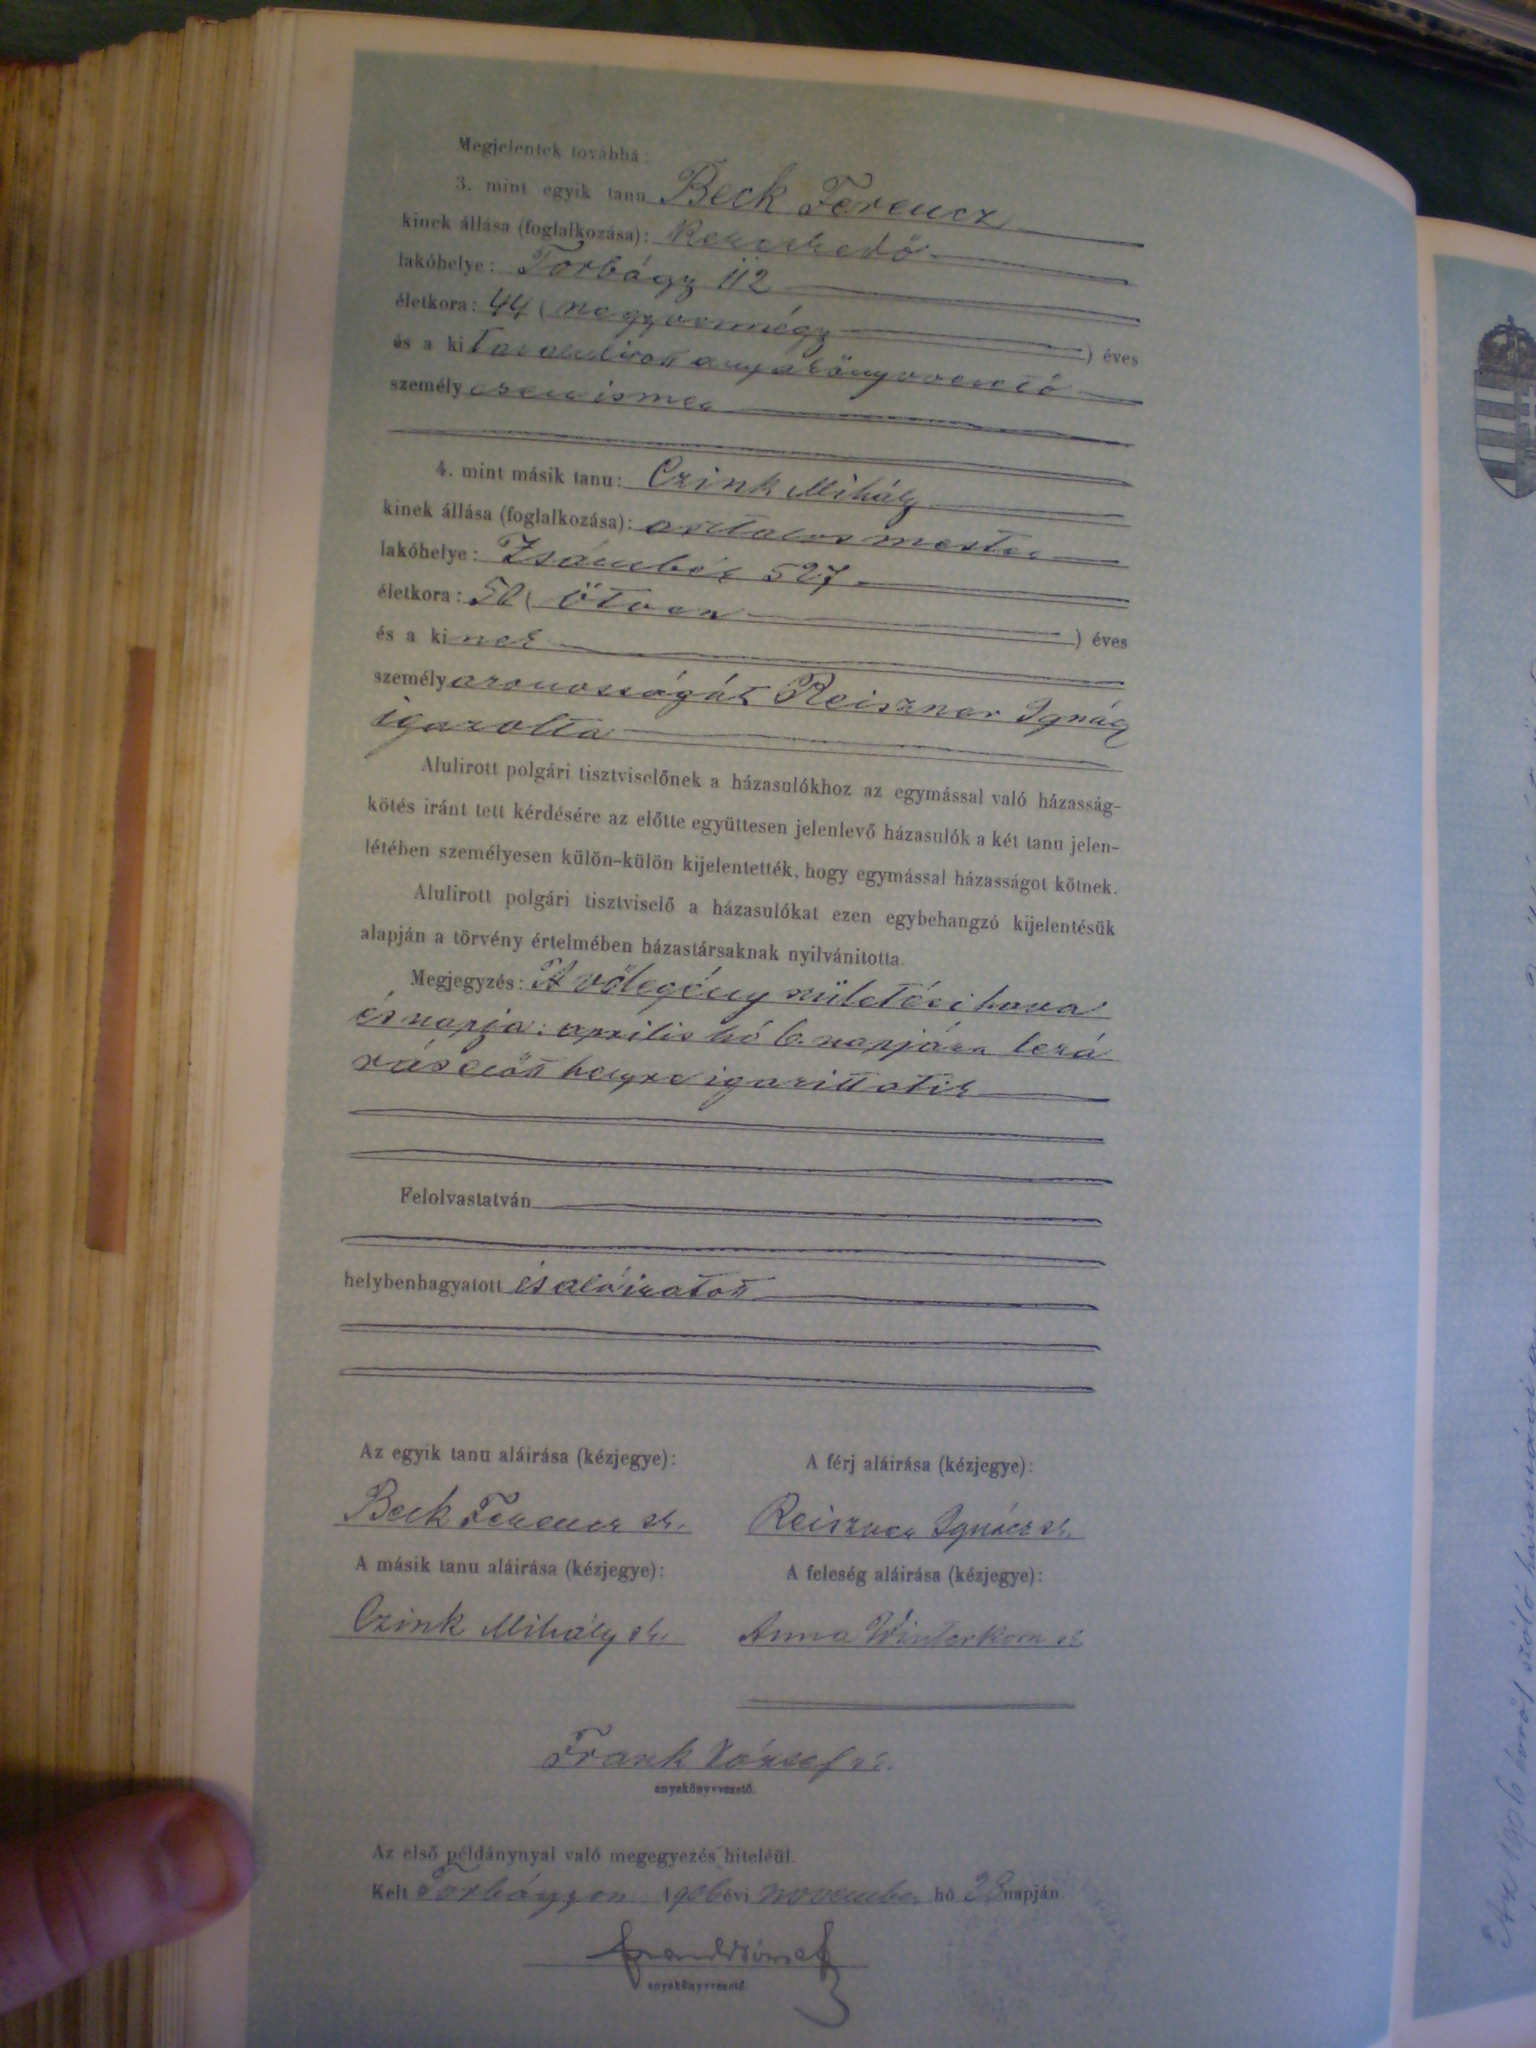 Megjelentek továbbá:
3. mint egyik tanu Beck Ferencz
kinek állása (foglalkozása): kereskedő
lakóhelye: Torbágy 112
életkora: 44 ( negyvennégy ) éves
és a kit az alulirott anyakönyvvezető
személyesen ismer
4. mint másik tanu: Czink Mihály
kinek állása (foglalkozása): asztalos mester
lakóhelye: Zsámbék 527
életkora: 50 ( ötven ) éves
és a kinek
személyazonosságát Reiszner Ignácz
igazolta
Alulirott polgári tisztviselőnek a házasulókhoz az egymással való házasság-
kötés iránt tett kérdésére az előtte együttesen jelenlevő házasulók a két tanu jelen-
létében személyesen külön-külön kijelentették, hogy egymással házasságot kötnek.
Alulirott polgári tisztviselő a házasulókat ezen egybehangzó kijelentésük
alapján a törvény értelmében házastársaknak nyilvánitotta.
Megjegyzés: A vőlegény születési hava
és napja: április hó 6. napjára lezá
rás előtt helyre igazittatik
Felolvastatván
helybenhagyatott és aláiratott
Az egyik tanu aláirása (kézjegye):
A férj aláirása (kézjegye):
Beck Ferencz sk.
Reiszner Ignácz sk.
A másik tanu aláirása (kézjegye):
A feleség aláirása (kézjegye):
Czink Mihály sk.
Anna Winterkorn sk
Frank József sk.
anyakönyvvezető.
Az első példánynyal való megegyezés hiteléül.
Kelt Torbágyon 1906 évi november hó 28 napján.
Frank József
anyakönyvvezető.
Az 1906 évről szóló házassági